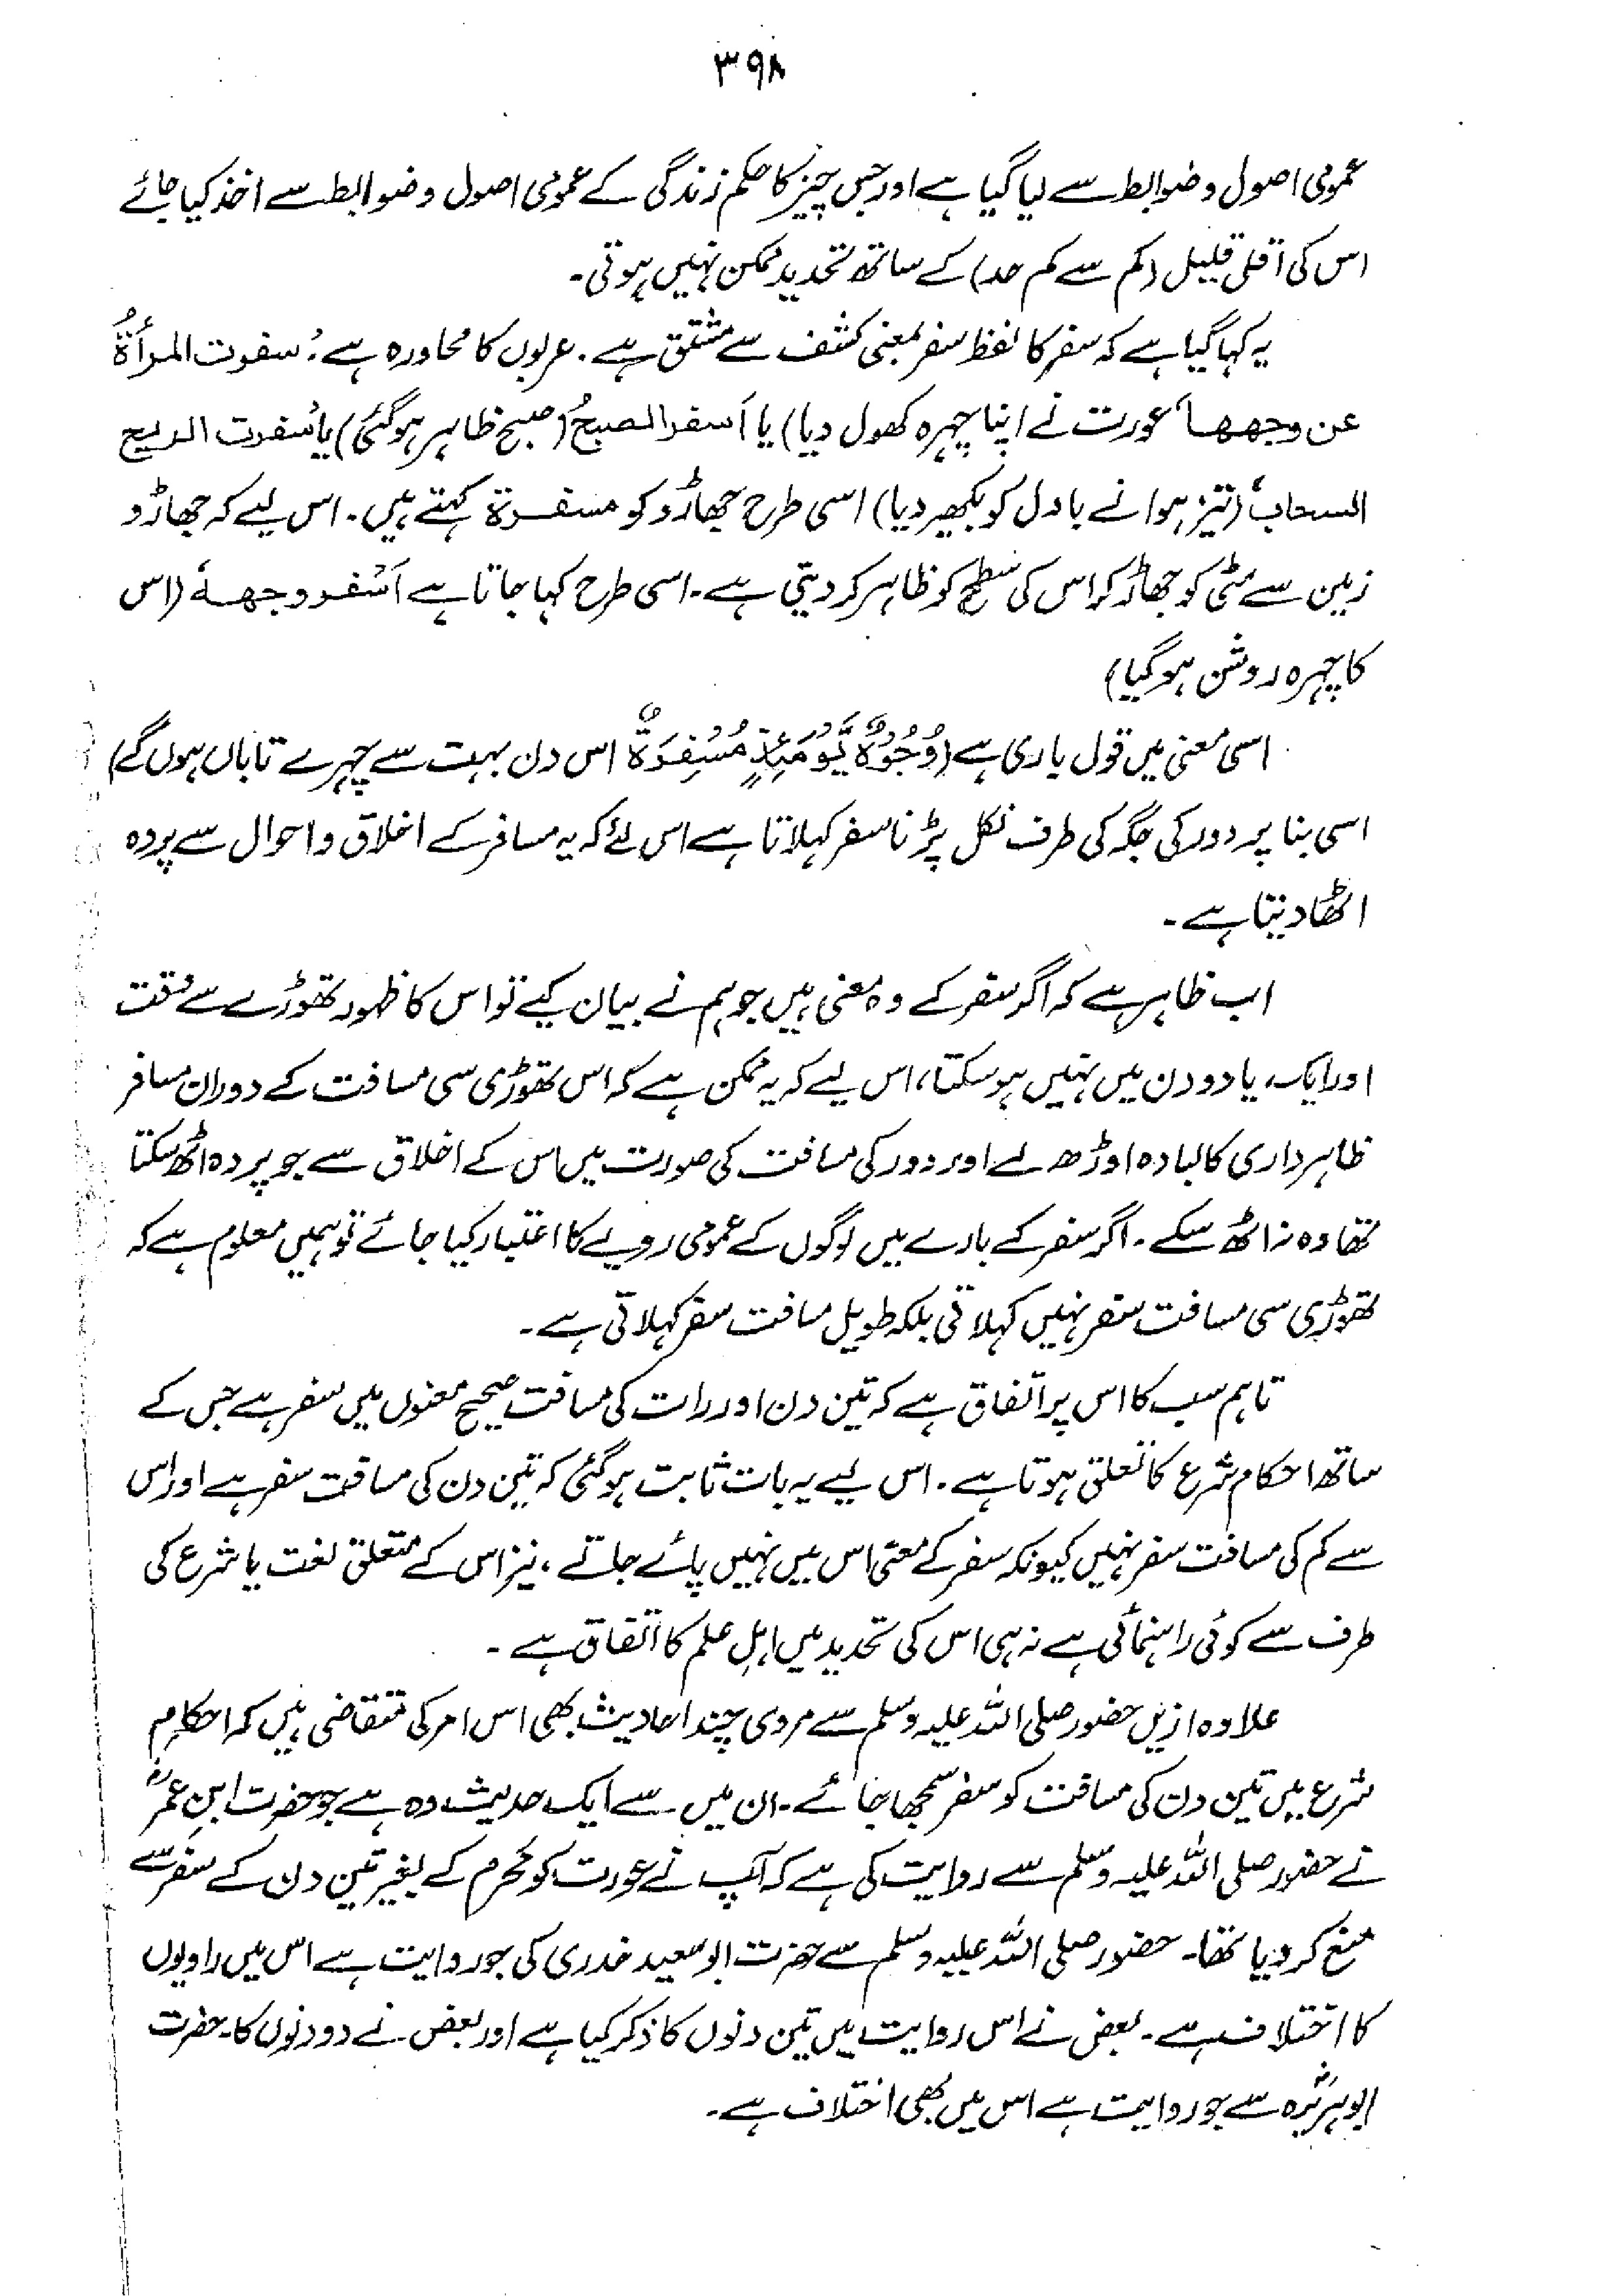 ۳۹۸
عمومی اصول و ضوابط سے لیا گیا ہے اور جس چیز کا حکم زندگی کے عمومی اصول و ضوابط سے اخذ کیا جائے
اس کی اقل قلیل (کم سے کم حد) کے ساتھ تحدید ممکن نہیں ہوتی۔
یہ کہا گیا ہے کہ سفر کا لفظ سفر بمعنی کشف سے مشتق ہے۔ عربوں کا محاورہ ہے: سفرت المرأۃُ
عن وجھھا (عورت نے اپنا چہرہ کھول دیا) یا اَسفر الصبحُ (صبح ظاہر ہوگئی) یا سفرت الریح
السحابَ (تیز ہوا نے بادل کو بکھیر دیا) اسی طرح جھاڑو کو مسفرۃ کہتے ہیں۔ اس لیے کہ جھاڑو
زمین سے مٹی کو جھاڑ کر اس کی سطح کو ظاہر کر دیتی ہے۔ اسی طرح کہا جاتا ہے اَسْفر وجھہٗ (اس
کا چہرہ روشن ہوگیا)
اسی معنی میں قول باری ہے (وُجُوْہٌ یَّوْمَئِذٍ مُّسْفِرَۃٌ اس دن بہت سے چہرے تاباں ہوں گے)
اسی بنا پر دور کی جگہ کی طرف نکل پڑنا سفر کہلاتا ہے اس لئے کہ یہ مسافر کے اخلاق و احوال سے پردہ
اٹھا دیتا ہے۔
اب ظاہر ہے کہ اگر سفر کے وہ معنی ہیں جو ہم نے بیان کیے تو اس کا ظہور تھوڑے سے وقت
اور ایک یا دو دن میں نہیں ہو سکتا، اس لیے کہ یہ ممکن ہے کہ اس تھوڑی سی مسافت کے دوران مسافر
ظاہر داری کا لبادہ اوڑھ لے اور دور کی مسافت کی صورت میں اس کے اخلاق سے جو پردہ اٹھ سکتا
تھا وہ نہ اٹھ سکے۔ اگر سفر کے بارے میں لوگوں کے عمومی رویے کا اعتبار کیا جائے تو ہمیں معلوم ہے کہ
تھوڑی سی مسافت سفر نہیں کہلاتی بلکہ طویل مسافت سفر کہلاتی ہے۔
تاہم سب کا اس پر اتفاق ہے کہ تین دن اور رات کی مسافت صحیح معنوں میں سفر ہے جس کے
ساتھ احکام شرع کا تعلق ہوتا ہے۔ اس لیے یہ بات ثابت ہوگئی کہ تین دن کی مسافت سفر ہے اور اس
سے کم کی مسافت سفر نہیں کیونکہ سفر کے معنی اس میں نہیں پائے جاتے، نیز اس کے متعلق لغت یا شرع کی
طرف سے کوئی راہنمائی ہے نہ ہی اس کی تحدید میں اہلِ علم کا اتفاق ہے۔
علاوہ ازیں حضور صلی اللہ علیہ وسلم سے مروی چند احادیث بھی اس امر کی متقاضی ہیں کہ احکام
شرع میں تین دن کی مسافت کو سفر سمجھا جائے۔ ان میں سے ایک حدیث وہ ہے جو حضرت ابنِ عمرؓ
نے حضور صلی اللہ علیہ وسلم سے روایت کی ہے کہ آپ نے عورت کو محرم کے بغیر تین دن کے سفر سے
منع کر دیا تھا۔ حضور صلی اللہ علیہ وسلم سے حضرت ابو سعید خدری کی جو روایت ہے اس میں راویوں
کا اختلاف ہے۔ بعض نے اس روایت میں تین دنوں کا ذکر کیا ہے اور بعض نے دو دنوں کا۔ حضرت
ابوہریرہؓ سے جو روایت ہے اس میں بھی اختلاف ہے۔